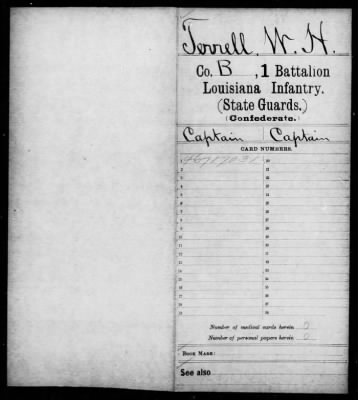 Terrell, W. H.
Co. B, 1 Battalion
Louisiana Infantry.
(State Guards.)
(Confederate.)
Captain | Captain
CARD NUMBERS.
1 46717031 20
2 21
3 22
4 23
5 24
6 25
7 26
8 27
9 28
10 29
11 30
12 31
13 32
14 33
15 34
16 35
17 36
18 37
19 38
Number of medical cards herein 0
Number of personal papers herein 0
BOOK MARK:
See also